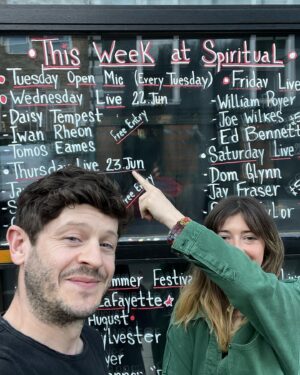 This Week at Spiritual
Tuesday Open Mic (Every Tuesday)
Wednesday Live 22.Jun
Daisy Tempest
Iwan Rheon
Tomos Eames
Free Entry
Thursday Live 23.Jun
Free
Friday Live
William Poyer
Joe Wilkes
Ed Bennett
Saturday Live
Dom Glynn
Jay Fraser
mmer Festival
Lafayette
August
Sylvester